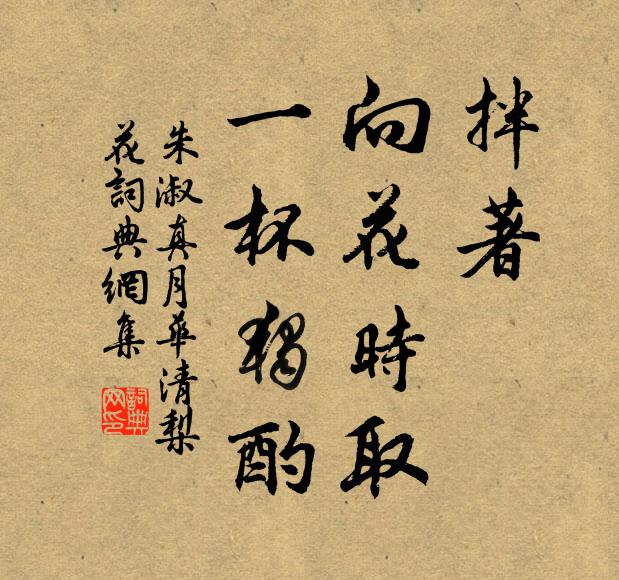 拌著
向花時取
一杯獨酌
朱淑真月華清梨
花詞典網集
詞典
网印